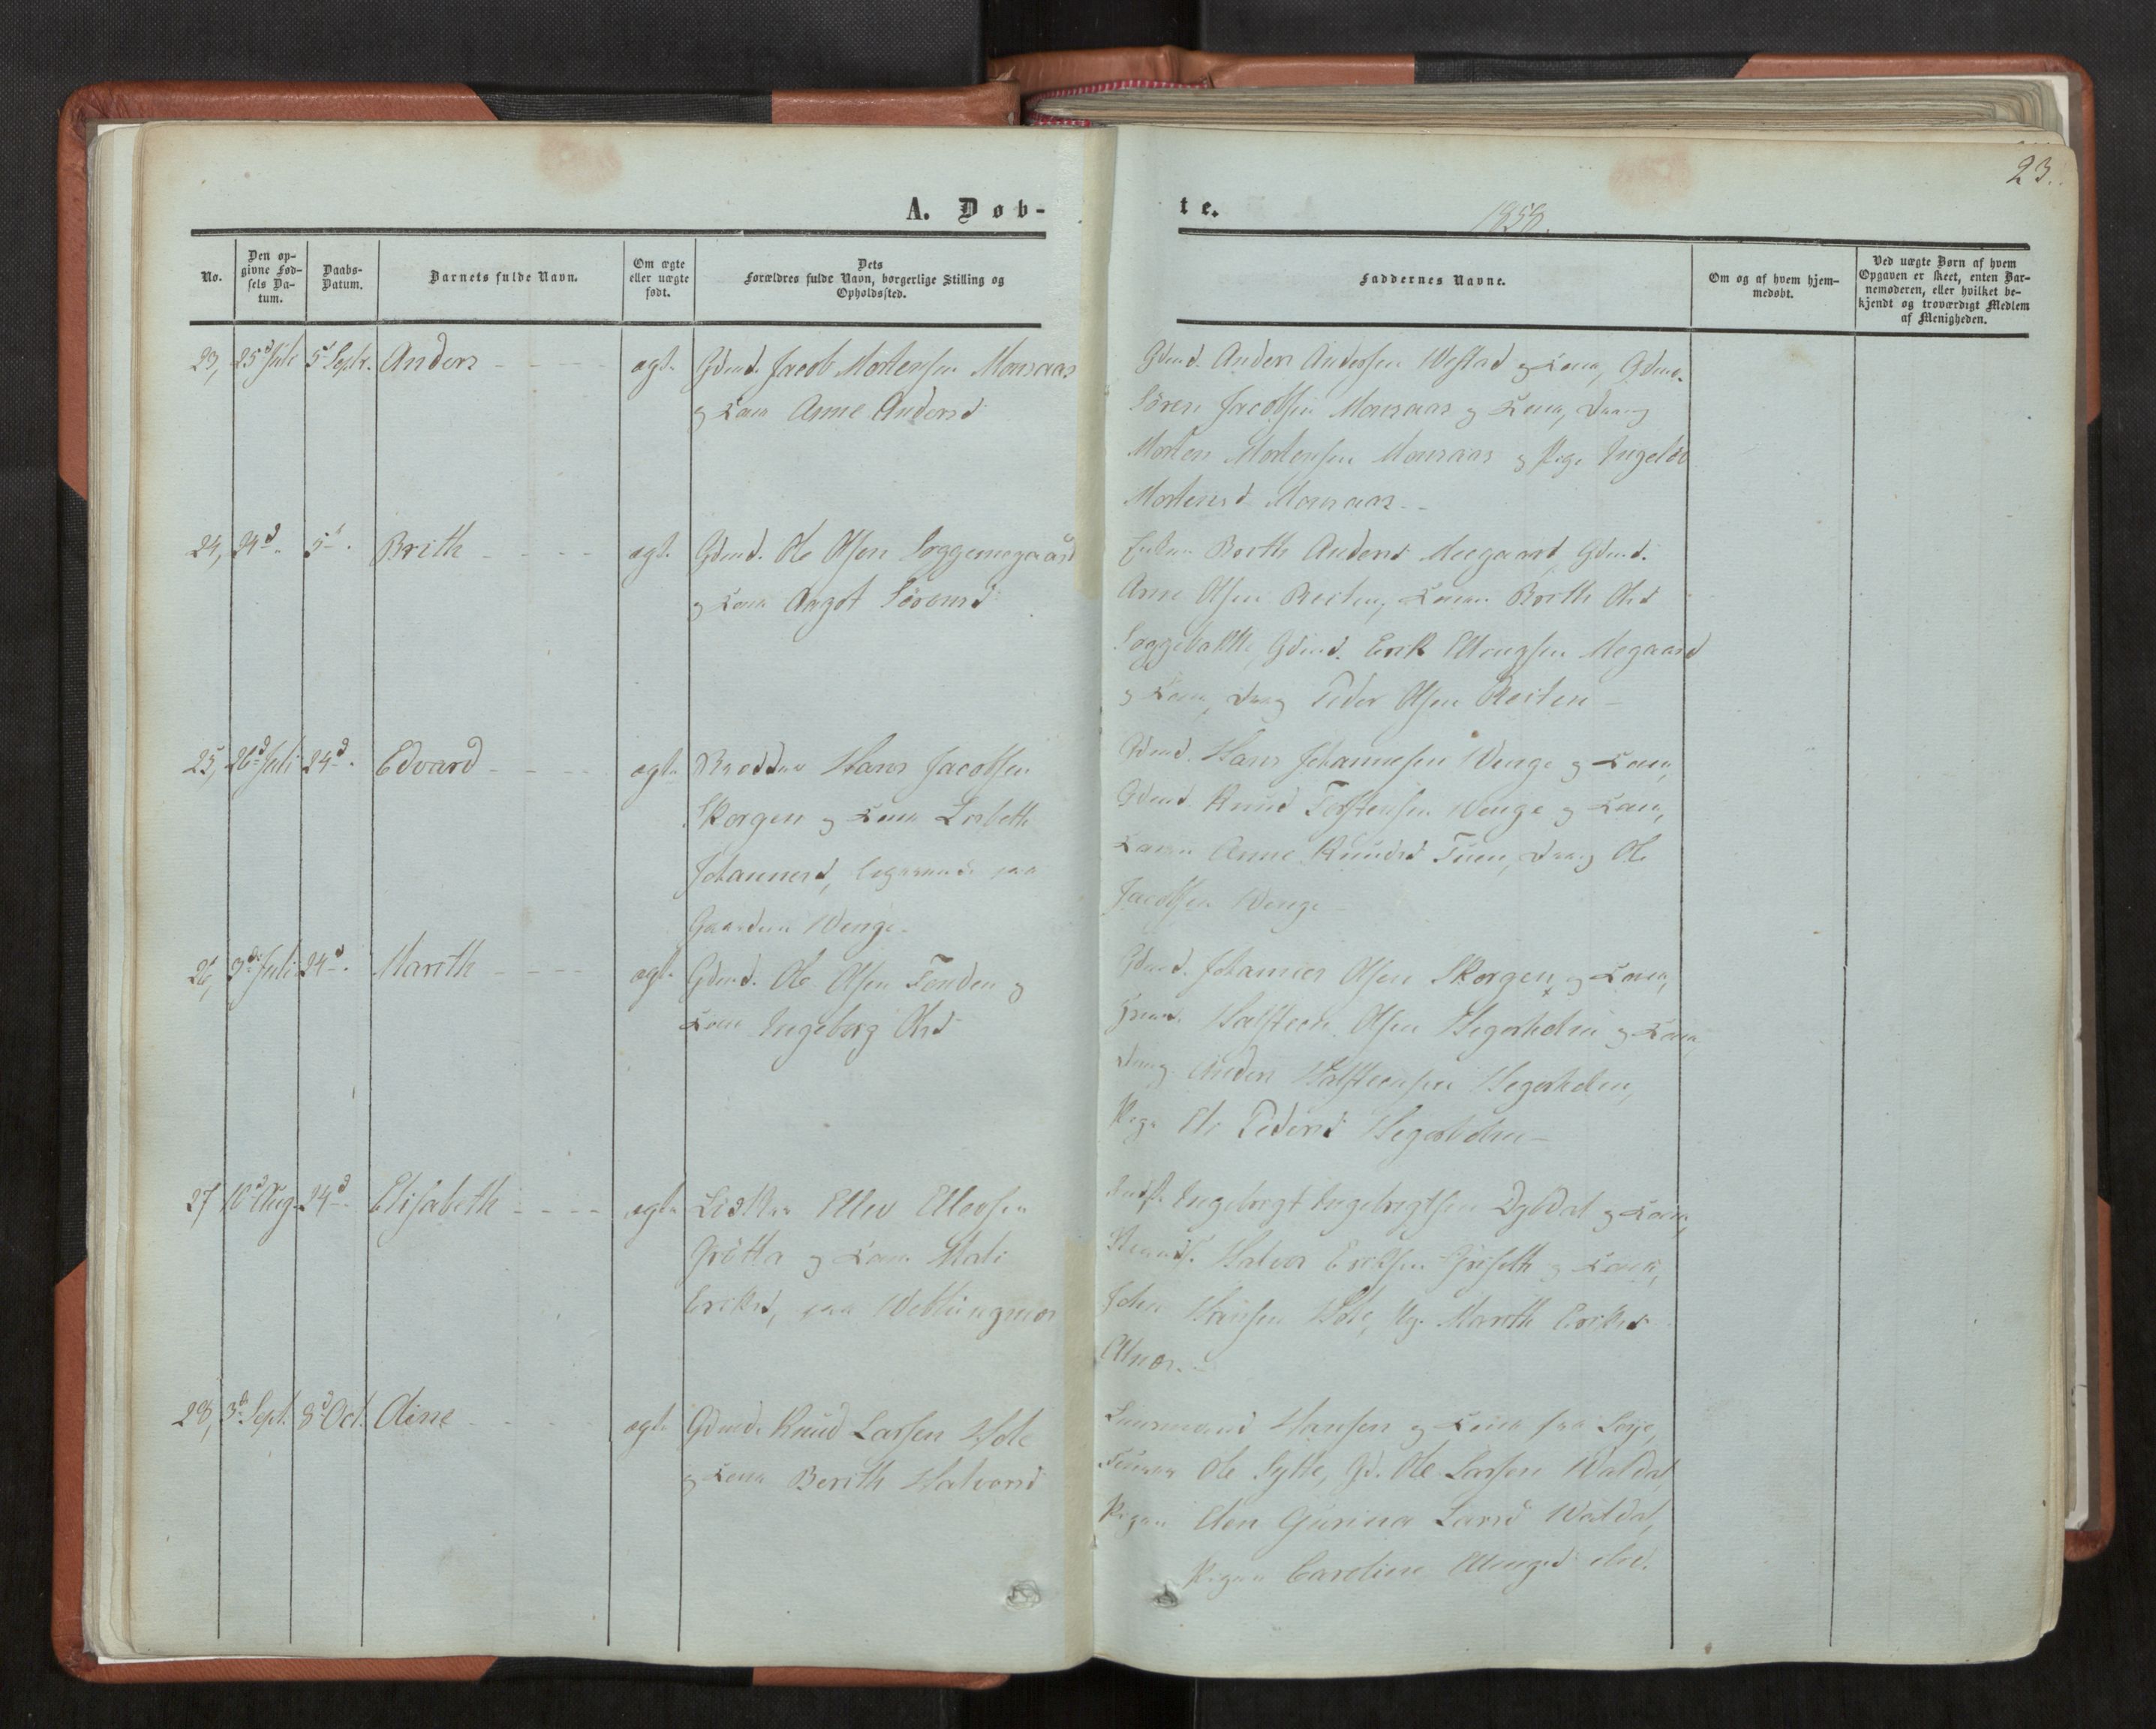 23.
A. Døb-
te.
1858.
No.
Den op-
givne Fød-
sels Da-
tum.
Daabs-
Datum.
Barnets fulde Navn.
Om ægte
eller uægte
født.
Dets
Forældres fulde Navn, borgerlige Stilling og
Opholdssted.
Faddernes Navne.
Om og af hvem hjem-
medøbt.
Ved uægte Børn af hvem
Opgaven er skeet, enten Bar-
nemoderen, eller hvilket be-
kjendt og troværdigt Medlem
af Menigheden.
23, 25d Juli 5t Septr. Anders - - - - ægt. Gdmd. Jacob Mortensen Monsaas
og Kone Anne Andersd
Gdmd. Anders Andersen Westad og Kone, Gdmd.
Sören Jacobsen Monsaas og Kone, Dreng
Morten Mortensen Monsaas og Pige Ingebor
Mortensd Monsaas. -
24, 5t. Brith - - - - ægt. Gdmd. Ole Olsen Soggemogaard
og Kone Aagot Sörensd
Enken Brith Andersd Moegaard, Gdmd.
Arne Olsen Reiten, Konen Brith Olsd
Soggebakke, Gdmd. Erik Ellingsen Mogaard
og Kone, Dreng Peder Olsen Reiten -
25, 26d Juli 24d. Edvard - - - - ægt. Hans Jacobsen
Skorgen og Kone Lisbeth
Johannesd, logerende paa
Gaarden Wenge.
Gdmd. Hans Johannesen Wenge og Kone,
Gdmd. Knud Torstensen Wenge og Kone,
Konen Anne Knudsd Tuen, Dreng Ole
Jacobsen Wenge -
26, Juli 24d. Marith - - - - ægt. Gdmd. Ole Olsen Fonden og
Kone Ingeborg Olsd
Gdmd. Johannes Olsen Skorgen, og Kone,
Halsteen Olsen Hegerholm og Kone,
Dreng Anders Halsteensen Hegerholm,
Pige Pedersd Hegerholm -
27 Aug. 24d. Elisabeth - - - - ægt. Ellev Ellevsen
Grötta og Kone Mali
Eriksd, paa Weblungsnæs
Ingebrigt Ingebrigtsen Dybdal og Kone,
Halvor Eriksen Griseth og Kone,
John Hansen Hole, Pg. Marith Eriksd
28, 3d Sept. 8d Oct. Oline - - - - ægt. Gdmd. Knud Larsen Hole
og Kone Berith Halvorsd
Hansen og Kone fra Søje,
Ole Sylte, Gd. Ole Larsen Waldal,
Pigen Elen Gurina Larsd Waldal,
Pigen Caroline Ellingsd ibd.